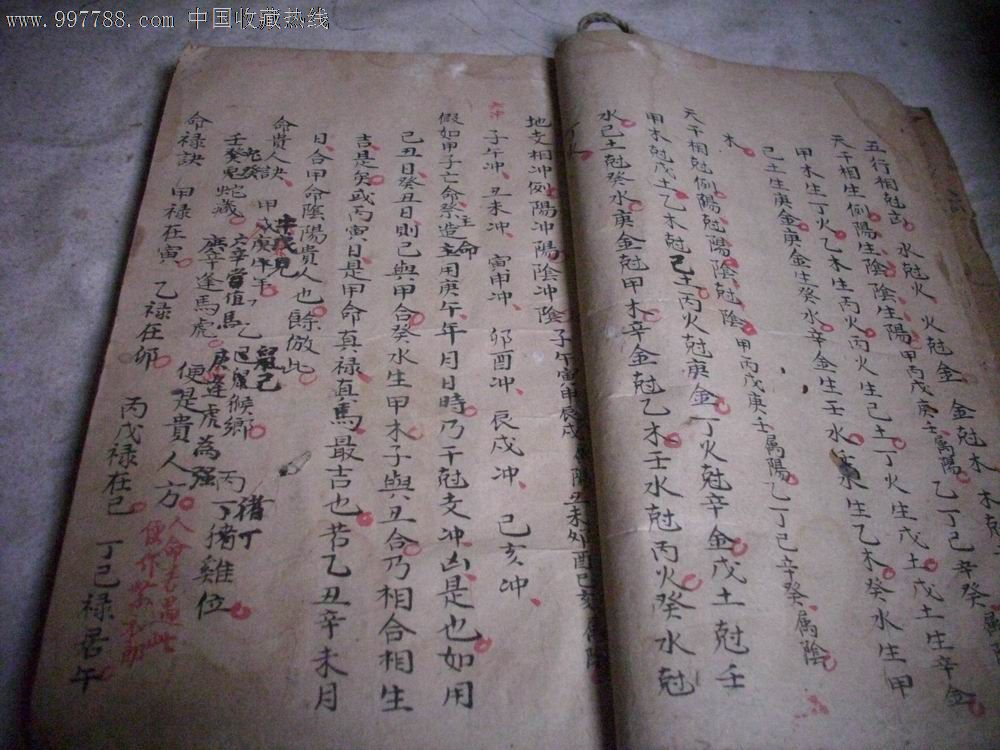 www.997788.com 中国收藏热线
五行相尅言 水尅火 火尅金 金尅木 木尅
天干相生例陽生陰陰生陽 甲丙戊庚壬屬陽 乙丁己辛癸屬
甲木生丁火乙木生丙火丙火生己土丁火生戊土戊土生辛金
己土生庚金庚金生癸水辛金生壬水壬水生乙木癸水生甲
木
天干相尅例陽尅陽陰尅陰 甲丙戊庚壬屬陽乙丁己辛癸屬陰
甲木尅戊土乙木尅己土丙火尅庚金丁火尅辛金戊土尅壬
水己土尅癸水庚金尅甲木辛金尅乙木壬水尅丙火癸水尅
地支相冲例陽冲陽陰冲陰 子午寅申辰戌 陽丑未卯酉巳亥 陰
六冲 子午冲 丑未冲 寅申冲 卯酉冲 辰戌冲 巳亥冲
假如甲子亡命祭造主命用庚午年月日時乃干尅支冲凶是也如用
己丑日癸丑日則己與甲合癸水生甲木子與丑合乃相合相生
吉是矣或丙寅日是甲命真禄真馬最吉也若乙丑辛未月
日合甲命陰陽貴人也餘倣此
命貴人訣 甲戊庚牛羊 乙己鼠猴鄉 丙丁猪雞位
壬癸兔蛇藏 六辛值馬 庚辛逢馬虎 庚逢虎為强 便是貴人方
命禄訣 甲禄在寅 乙禄在卯 丙戊禄在巳 丁己禄居午